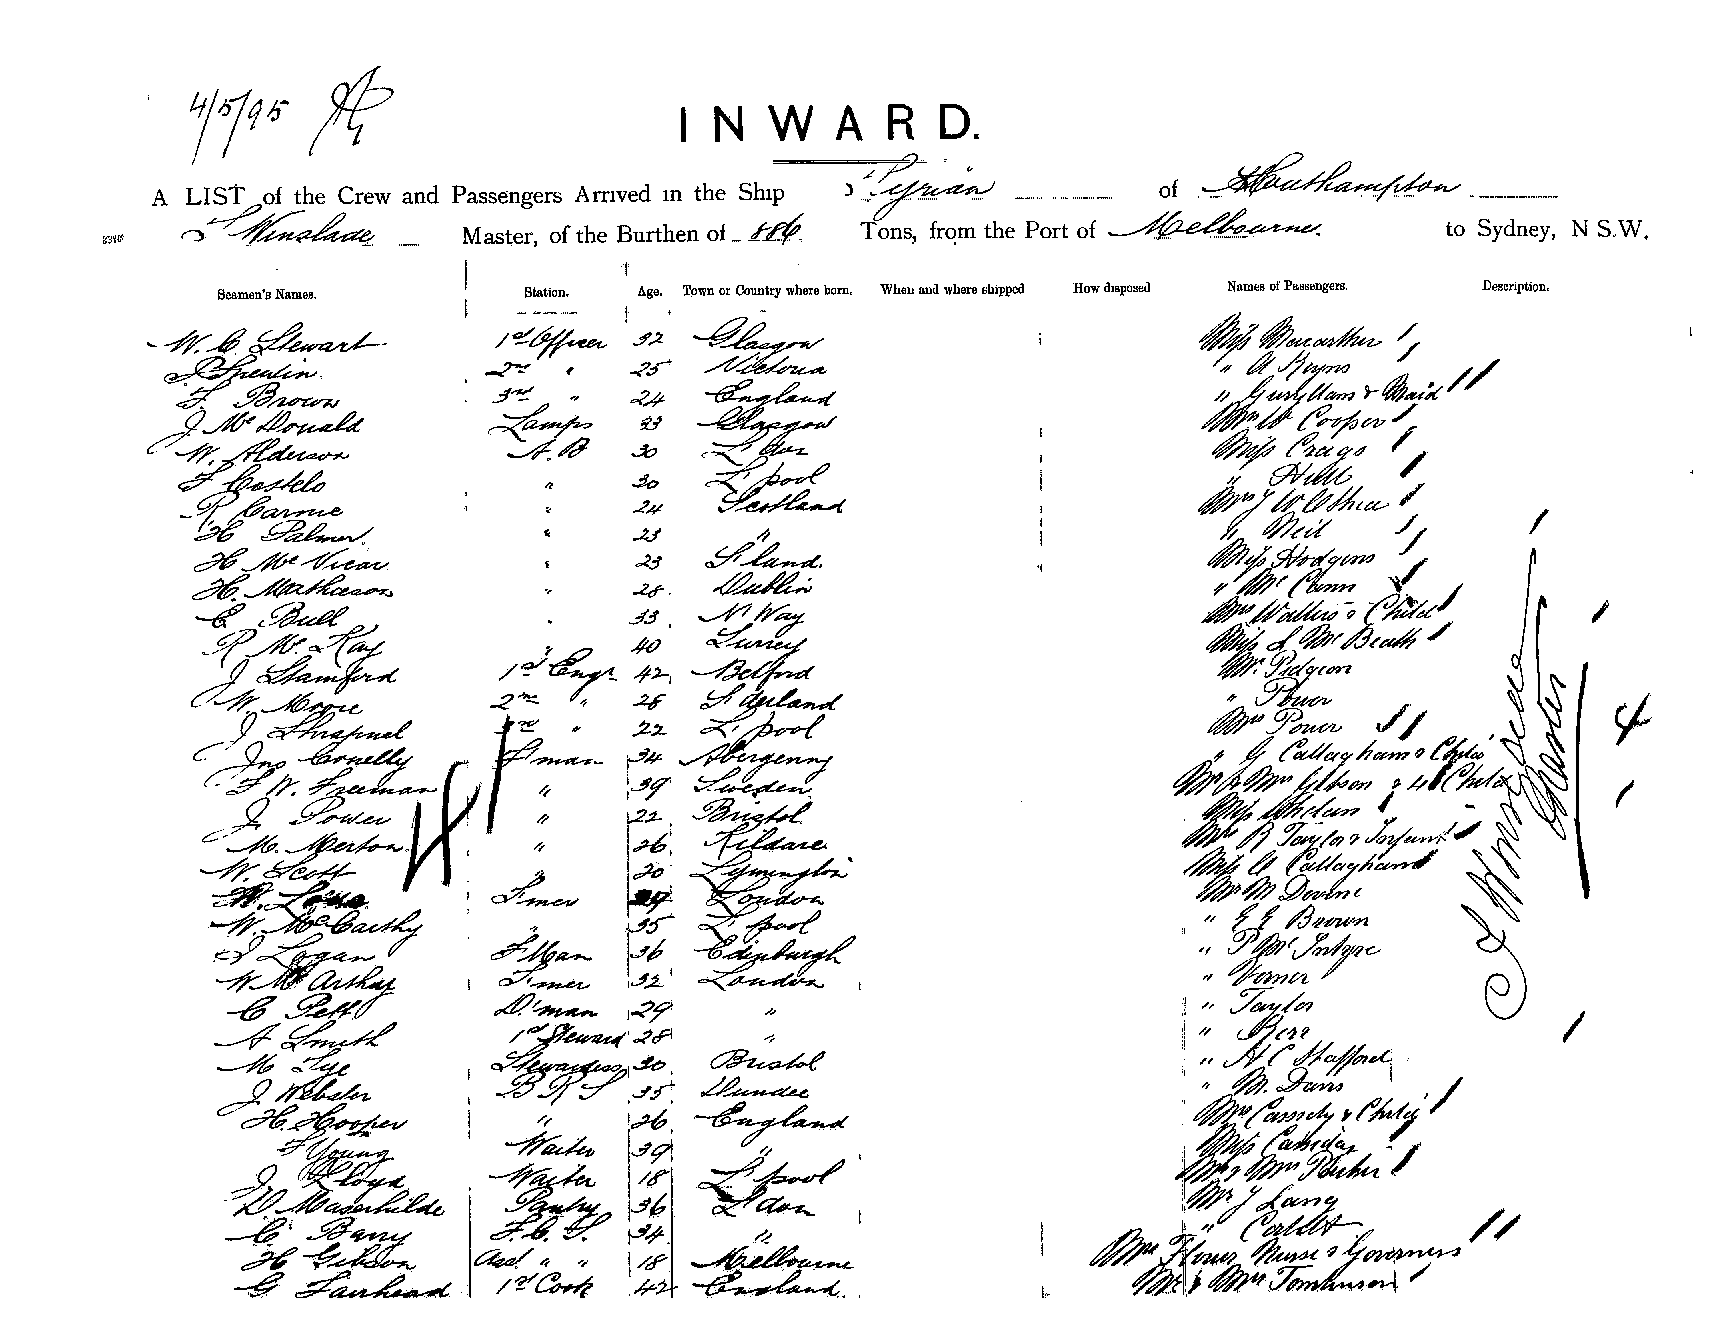 4/5/95
INWARD.
A LIST of the Crew and Passengers Arrived in the Ship Tyrian of Southampton
Winslade Master, of the Burthen of 886 Tons, from the Port of Melbourne. to Sydney, N S.W.
Seamen's Names. Station. Age. Town or Country where born. When and where shipped How disposed Names of Passengers. Description.
W. C. Stewart 1st Officer 32 Glasgow Miss Macarthur
2nd " 25 Victoria " A Keyns
F. Brown 3rd " 24 England " & Maid
J. McDonald Lamps 33 Glasgow Mrs W Cooper
W. Alderson A.B 30 L'don Miss Craigs
F Costelo " 30 L'pool " Hill
R Carnie " 24 Scotland Mrs J W
H Palmer. " 23 " " Neil
H McVicar " 23 S'land. Miss Hodgins
H. Mathieson " 28 Dublin " McCann
C Bull " 33 N'Way Mrs Walters & Child
R McKay " 40 Surrey Miss S McBeath
J Stamford 1st Engr 42 Belford Mr. Pidgeon
W. Moore 2nd " 28 S'derland " Power
J Shrapnel 3rd " 22 L'pool Mrs Power
Jno Conelly F'man 34 Abergenny " G Callaghan & Child
F W. Freeman " 39 Sweden Mr & Mrs Gibson & 4 Child
J. Power " 22 Bristol Miss Phelan
M. Merton " 26 Kildare Mrs R Taylor & Infant
W. Scott " 30 Lymington Miss A Callaghan
T'mer London Mr M Devine
W. McCarthy " 35 L'pool " Brown
J Logan F'Man 36 Edinburgh " P McIntyre
W McArthy T'mer 32 London " Verner
C Pett D'man 29 " " Taylor
A Smith 1st Steward 28 " " Kerr
M Tye Stewardess 30 Bristol " H C Stafford
J. Webster B R S 35 Dundee " M. Davis
H. Hooper " 26 England Mrs Cassidy & Child
F Young Waiter 39 " Miss Cassiday
J. Lloyd Waiter 18 L'pool Mr & Mrs Parker
D Maserhilde Pantry 36 L'don Mr J Lang
C. Barry F.C.S. 34 " "
H Gibson Asst " " 18 Melbourne Mrs Flower Nurse & Governess
G Fairhead 1st Cook 42 England. Mr & Mrs Tomlinson
Winslade
Master
4